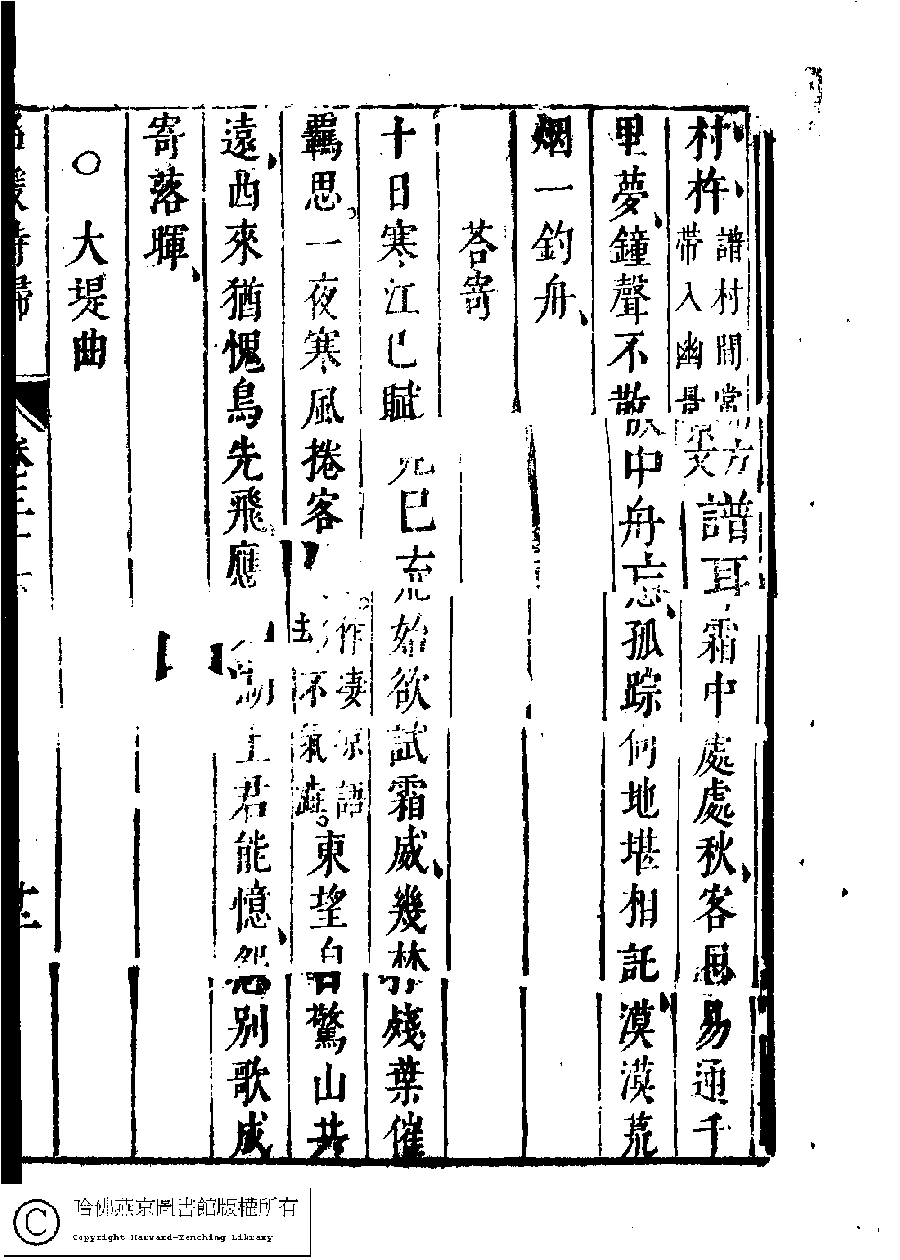 村杵譜村間常方帶入幽景文譜耳霜中處處秋客思易通千
里夢鐘聲不散中舟忘孤踪何地堪相託漠漠荒
烟一釣舟
荅寄
十日寒江已賦巳充始欲試霜威幾林殘葉催
羈思一夜寒風捲客作凄凉語不氣東望自驚山共
遠西來猶愧鳥先飛應上君能憶怨別歌成
寄落暉
○大堤曲
哈佛燕京圖書館版權所有
Copyright Harvard-Yenching Library